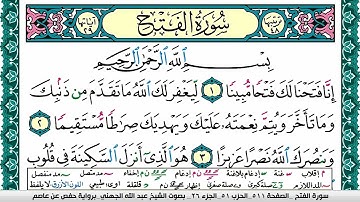 سُورَةُ الفَتْحِ
بِسْمِ ٱللَّهِ ٱلرَّحْمَٰنِ ٱلرَّحِيمِ
إِنَّا فَتَحْنَا لَكَ فَتْحًا مُّبِينًا ١ لِّيَغْفِرَ لَكَ ٱللَّهُ مَا تَقَدَّمَ مِن ذَنۢبِكَ
وَمَا تَأَخَّرَ وَيُتِمَّ نِعْمَتَهُۥ عَلَيْكَ وَيَهْدِيَكَ صِرَٰطًا مُّسْتَقِيمًا ٢
وَيَنصُرَكَ ٱللَّهُ نَصْرًا عَزِيزًا ٣ هُوَ ٱلَّذِىٓ أَنزَلَ ٱلسَّكِينَةَ فِى قُلُوبِ
سورة الفتح _ الصفحة ٥١١ _ الحزب ٥١ _ الجزء ٢٦ _ بصوت الشيخ عبد الله الجهني برواية حفص عن عاصم